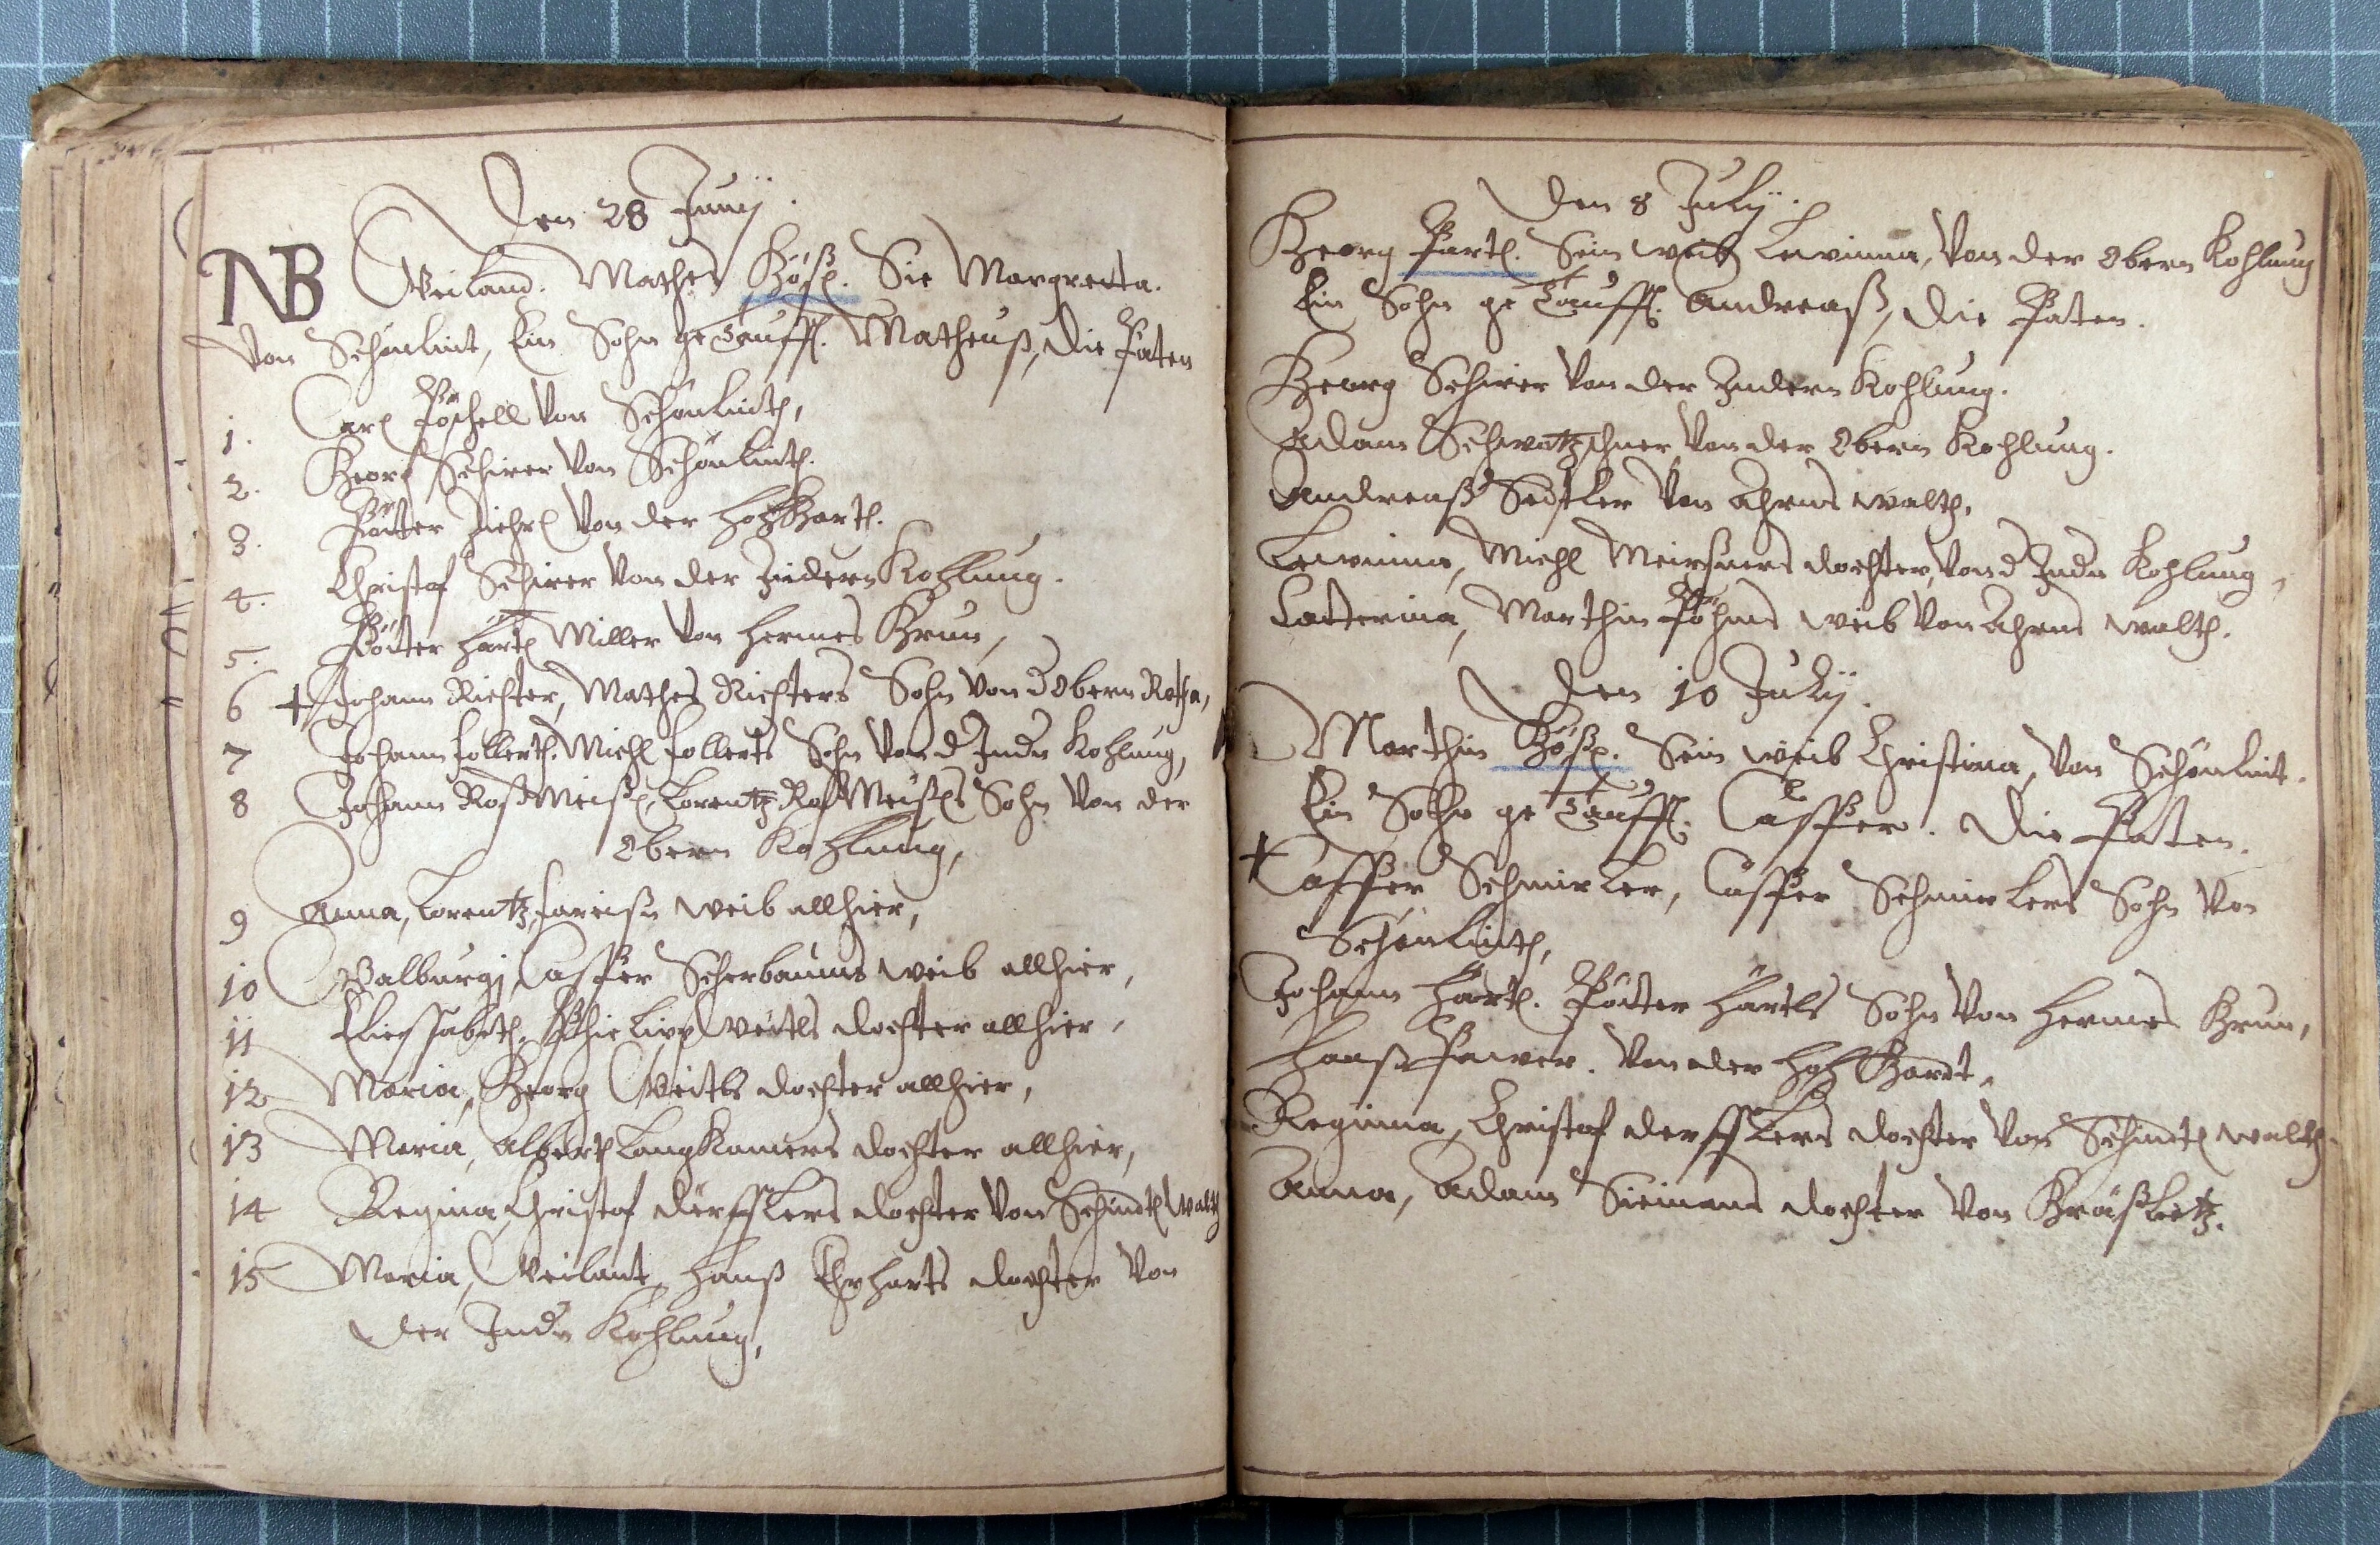 Den 28 Junij.
NB Weiland. Mathes Böß. Sie Margreta.
Von Schönlint, Ein Sohn getaufft. Matheuß, die Paten
1. Carl Pöschell Von Schönlinth,
2. Georg Schirer Von Schönlinth.
3. Peter Von der
4. Christof Schirer Von der Indern Kohlung.
5. Peter Härtl Miller Von Hermes Grun,
6 + Johann Richter, Mathes Richters Sohn Von d Obern Rotha,
7 Johann Follerth. Michl Follerts Sohn Von d Indn Kohlung,
8 Johann RoßMeißl, Lorentz RoßMeißls Sohn Von der
Obern Kohlung,
9 Anna, Lorentz weib allhier,
10 Walburgj Casper Scherbaums weib allhier,
11 Eliessabeth, Phielipp Veitls dochter allhier,
12 Maria, Georg Veitls dochter allhier,
13 Maria, Alberth Langkamers dochter allhier,
14 Regina, Christof dörfflers dochter Von Schindlwalth
15 Maria, Weilant, Hanß Ehrharts dochter Von
der Indn Kohlung,
Den 8 Julij.
Georg Partl. Sein weib Von der Obern Kohlung
Ein Sohn ge Taufft. Andreaß, die Paten.
Georg Schirer Von der Indern Kohlung.
Adam Von der Obern Kohlung.
Andreaß Von Ahrnswalth,
Michl Meinßners dochter, Von d Indn Kohlung,
Catterina, Marthin Pöhms weib Von Ahrns walth.
Den 10 Julij.
Marthin Böß. Sein weib Christina, Von Schönlint.
Ein Sohn ge Taufft. Casper. die Paten.
+ Casper Schmirler, Casper Schmirlers Sohn Von
Schönlinth,
Johann Härtl. Peter Härtls Sohn Von Hermes Grun,
Hanß Von der
Reginna, Christof derfflers dochter Von Schindlwalth.
Anna, Adam Siemans dochter Von Gräßletz.